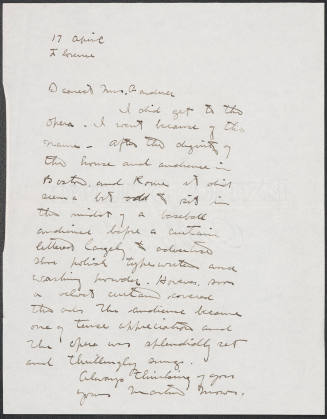 17 April
Florence
Dearest Mrs. Gardner
I did get to the
opera. I went because of the
name. After the dignity of
the house and audience in
Boston, and Rome it did
seem a bit odd to sit in
the midst of a baseball
audience before a curtain
lettered largely to advertise
shoe polish typewriters and
washing powder. However, soon
a velvet curtain covered
the ads. The audience became
one of tense appreciation and
the opera was splendidly set
and thrillingly sung.
Always thinking of you
yours Martin Mower.